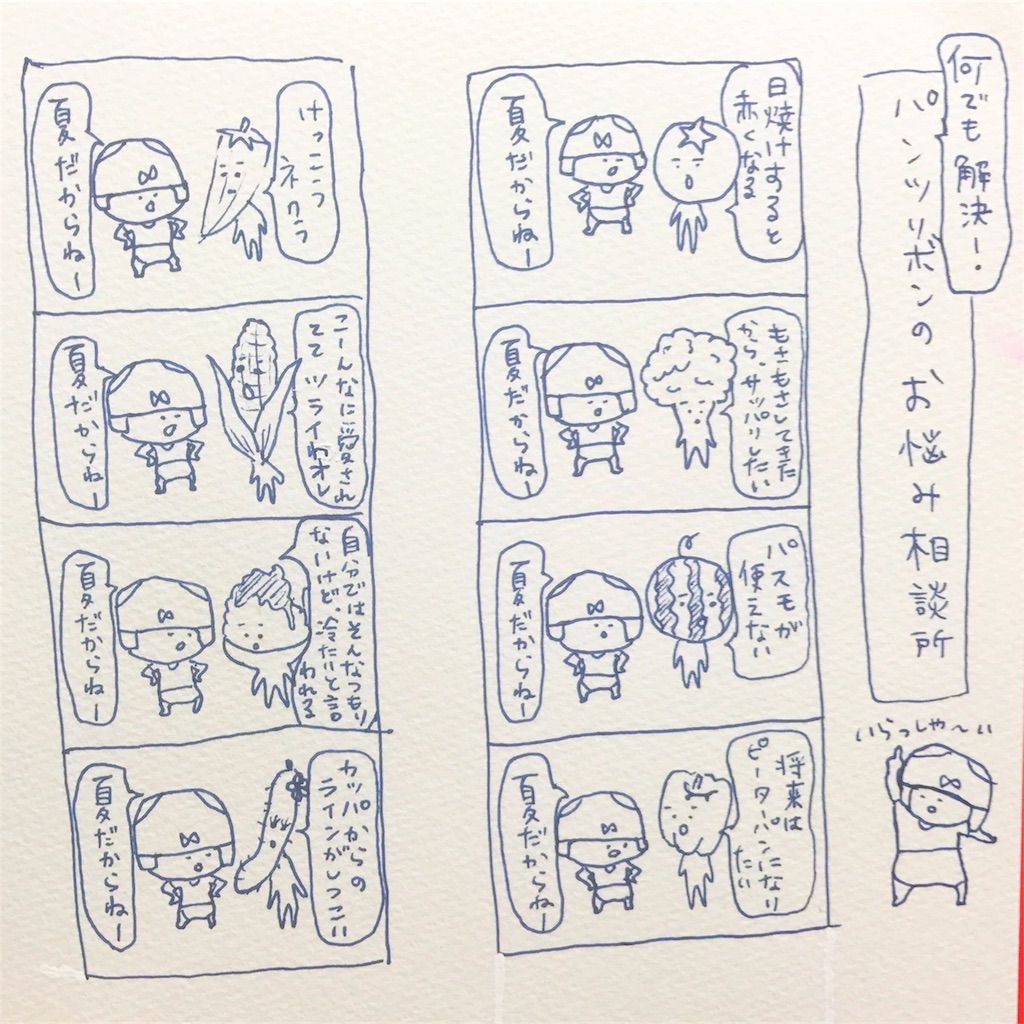 何でも解決!
パンツリボンのお悩み相談所
いらっしゃ〜い
日焼けすると
赤くなる
夏だからねー
もさもさしてきた
から、サッパリしたい
夏だからねー
パスモが
使えない
夏だからねー
将来は
ピーターパンになり
たい
夏だからねー
けっこう
ネクラ
夏だからねー
こーんなに愛され
てて ツライわオレ
夏だからねー
自分ではそんなつもり
ないけど、冷たいと言
われる
夏だからねー
カッパからの
ラインがしつこい
夏だからねー